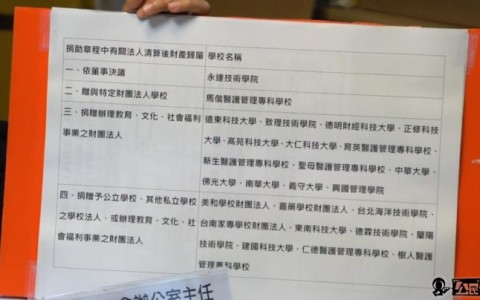 捐助章程中有關法人清算後財產歸屬 學校名稱
一、依董事決議 永達技術學院
二、贈與特定財團法人學校 馬偕醫護管理專科學校
三、捐贈辦理教育、文化、社會福利
事業之財團法人
遠東科技大學、致理技術學院、德明財經科技大學、正修科技
大學、高苑科技大學、大仁科技大學、育英醫護管理專科學校、
新生醫護管理專科學校、聖母醫護管理專科學校、中華大學、
佛光大學、南華大學、義守大學、興國管理學院
四、捐贈予公立學校、其他私立學校
之學校法人、或辦理教育、文化、社
會福利事業之財團法人
美和學校財團法人、嘉藥學校財團法人、台北海洋技術學院、
台南家專學校財團法人、東南科技大學、德霖技術學院、蘭陽
技術學院、建國科技大學、仁德醫護管理專科學校、樹人醫護
管理專科學校
辦公室主任